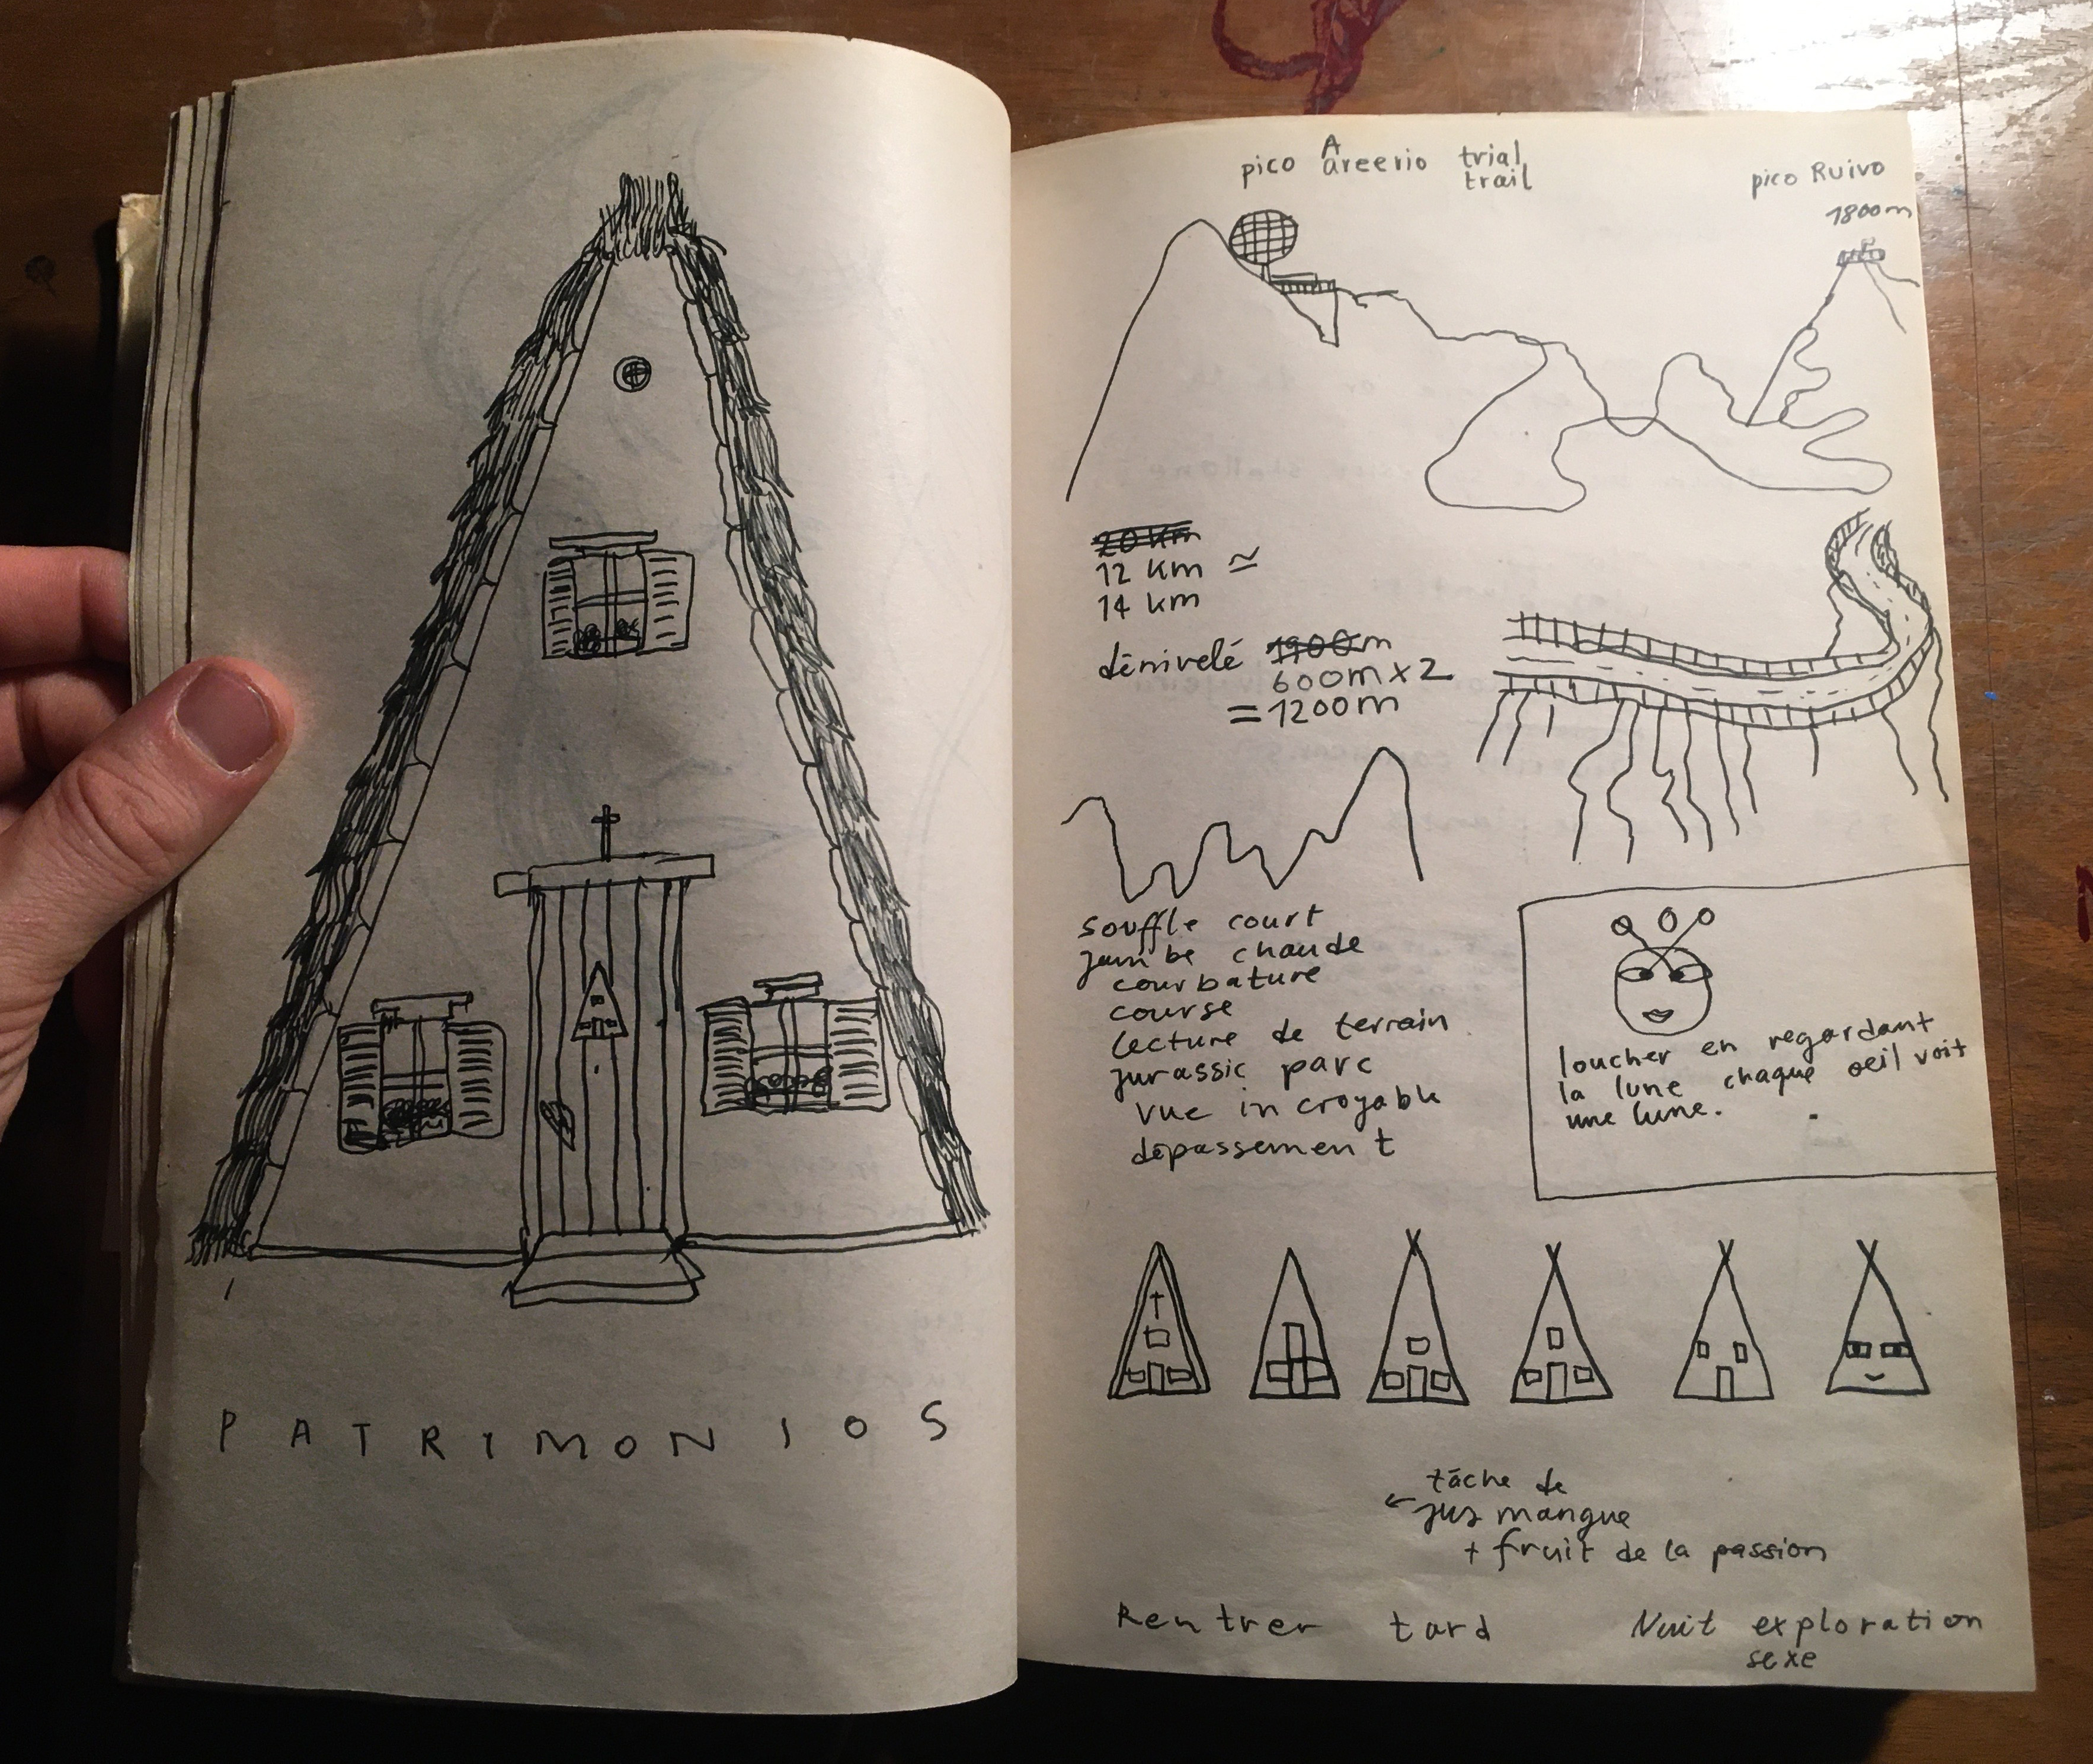 PATRIMONIOS
pico Areerio trial
trail
pico Ruivo
1800m
20 km
12 km ≃
14 km
dénivelé 1900m
600m x 2
= 1200m
souffle court
jambe chaude
courbature
course
lecture de terrain
jurassic parc
vue incroyable
dépassement
loucher en regardant
la lune chaque oeil voit
une lune.
tâche de
← jus mangue
+ fruit de la passion
Rentrer tard
Nuit exploration
sexe